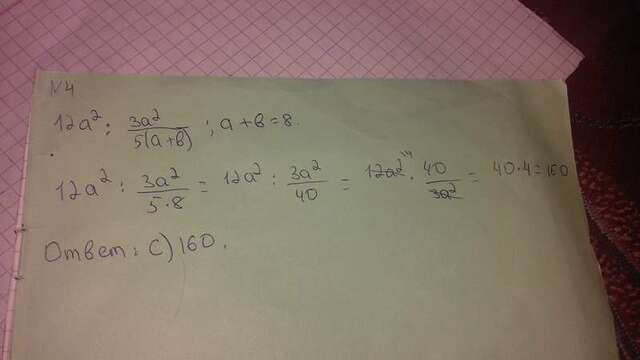 №4
12a² : 3a²/5(a+b) ; a+b=8.
12a² : 3a²/5·8 = 12a² : 3a²/40 = 12a² · 40/3a² = 40·4=160
Ответ: C) 160.